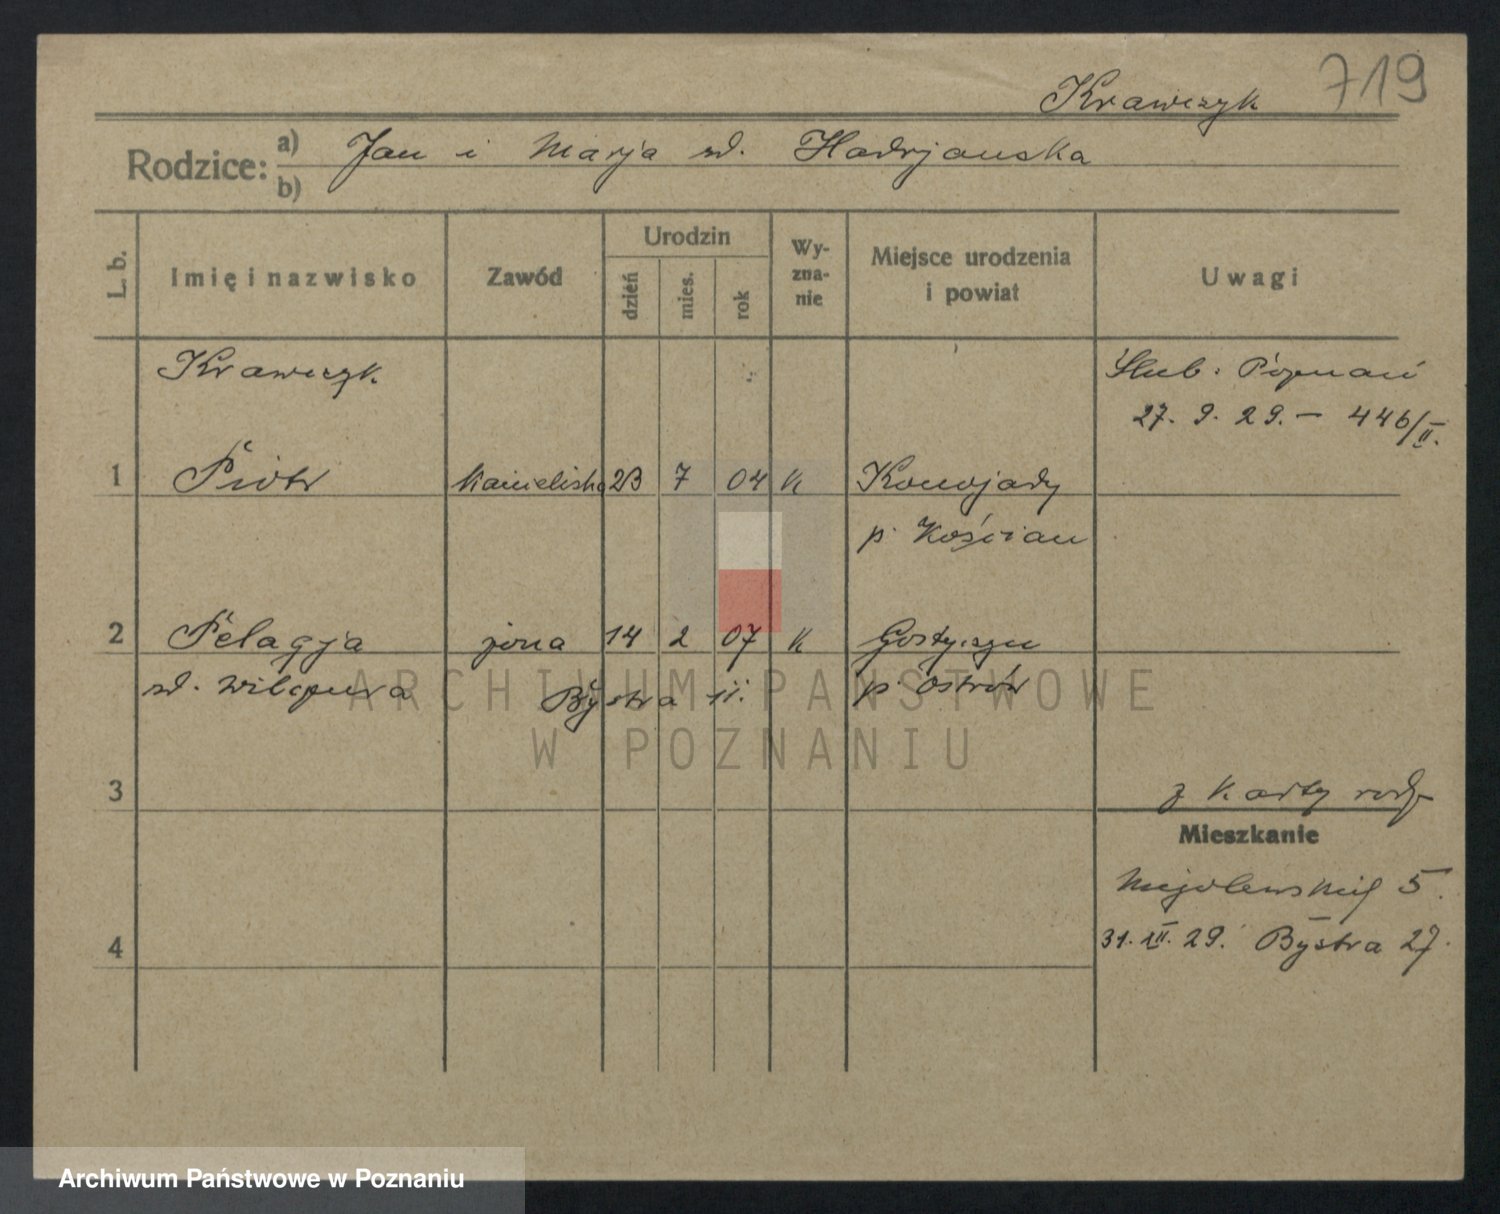 Krawczyk 719
Rodzice: a) Jan i Marja zd. Hadrjanska
b)
L. b. Imię i nazwisko Zawód Urodzin dzień mies. rok Wy-zna-nie Miejsce urodzenia i powiat Uwagi
Krawczyk Ślub: Poznań
27. 9. 29. – 446/II.
1 Piotr 23 7 04 k Konojady
p. Kościan
2 Pelagja żona 14 2 07 k Gostyczyn
zd. Bystra p. Ostrów
3 z karty rodz.
Mieszkanie
Niegolewskich 5.
4 31. XII. 29. Bystra 27.
ARCHIWUM PAŃSTWOWE
W POZNANIU
Archiwum Państwowe w Poznaniu